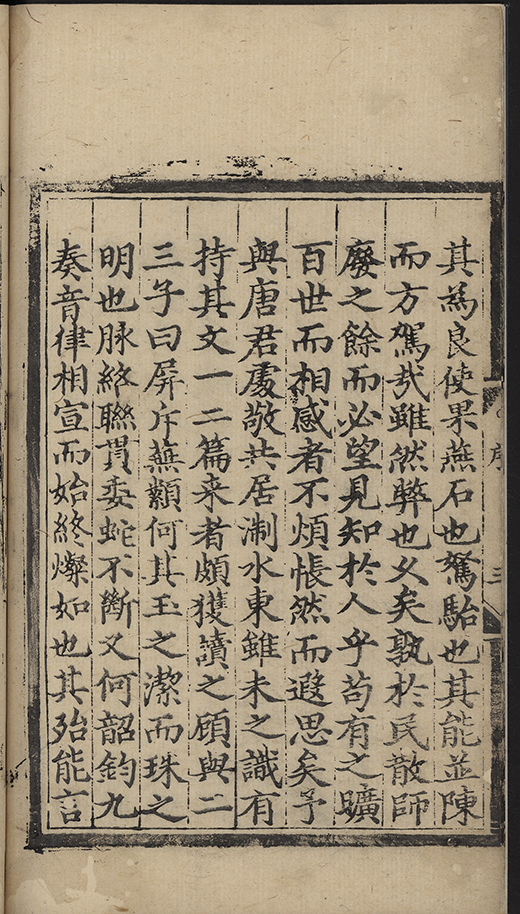 序 三
其為良使果燕石也駑駘也其能並陳
而方駕㢤雖然弊也乆矣孰於民散師
廢之餘而必望見知於人乎苟有之曠
百世而相感者不煩悵然而遐思矣予
與唐君處敬共居淛水東雖未之識有
持其文一二篇来者頗獲讀之顧與二
三子曰屏斥蕪纇何其玉之潔而珠之
明也脉絡聯貫委蛇不斷又何韶鈞九
奏音律相宣而始終燦如也其殆能言